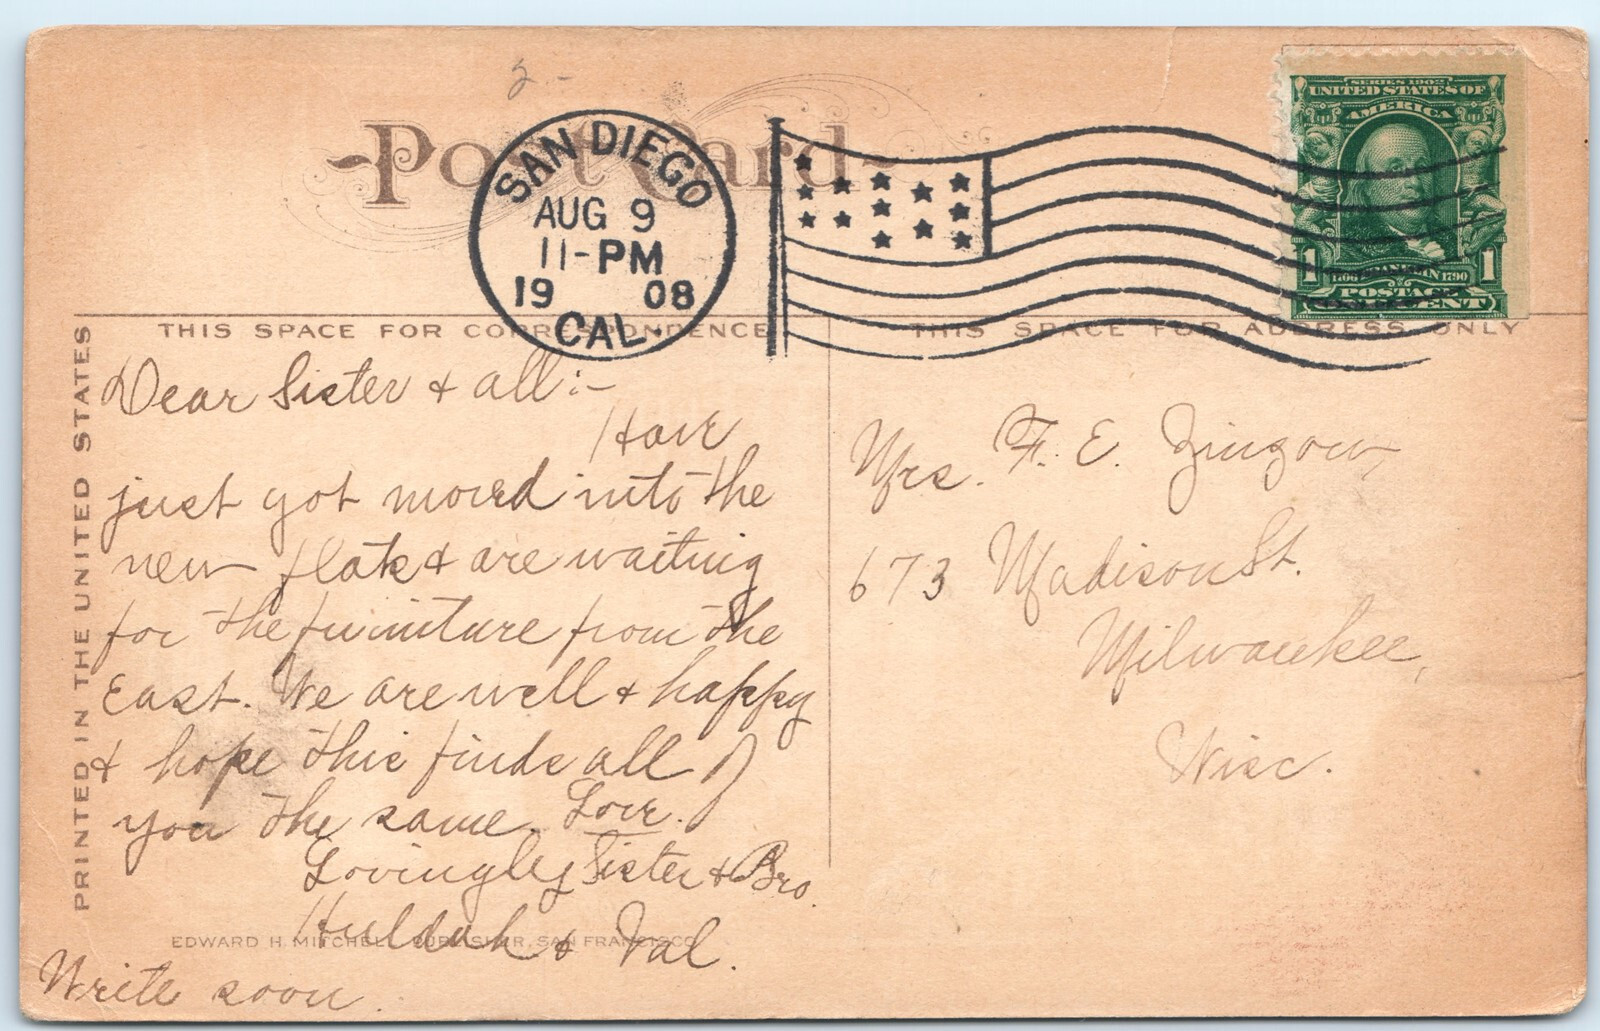 2.-
Post Card
SAN DIEGO
AUG 9
11-PM
1908
CAL.
SERIES 1902
UNITED STATES OF
AMERICA
1 1706 FRANKLIN 1790 1
POSTAGE
ONE CENT
THIS SPACE FOR CORRESPONDENCE
THIS SPACE FOR ADDRESS ONLY
PRINTED IN THE UNITED STATES
Dear Sister & all:-
Have
just got moved into the
new flat & are waiting
for the furniture from the
East. We are well & happy
& hope this finds all
you the same. Love.
Lovingly Sister & Bro.
Huldah & Val.
Write soon.
Mrs. F. E. Zingow,
673 Madison St.
Milwaukee,
Wisc.
EDWARD H. MITCHELL, PUBLISHER, SAN FRANCISCO